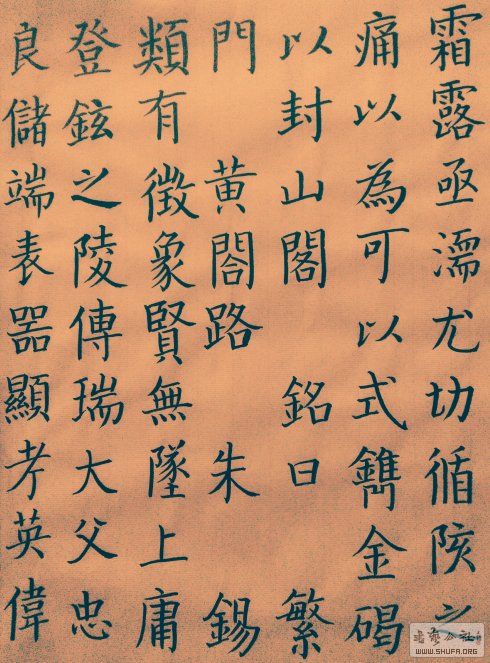 霜露亟濡尤切循陔之
痛以為可以式鐫金碣
以封山閣 銘曰 繁
門 黃閤路 朱 錫
類有徵象賢無墜上庸
登鉉之陵傳瑞大父忠
良儲端表器顯考英偉
WWW.SHUFA.ORG